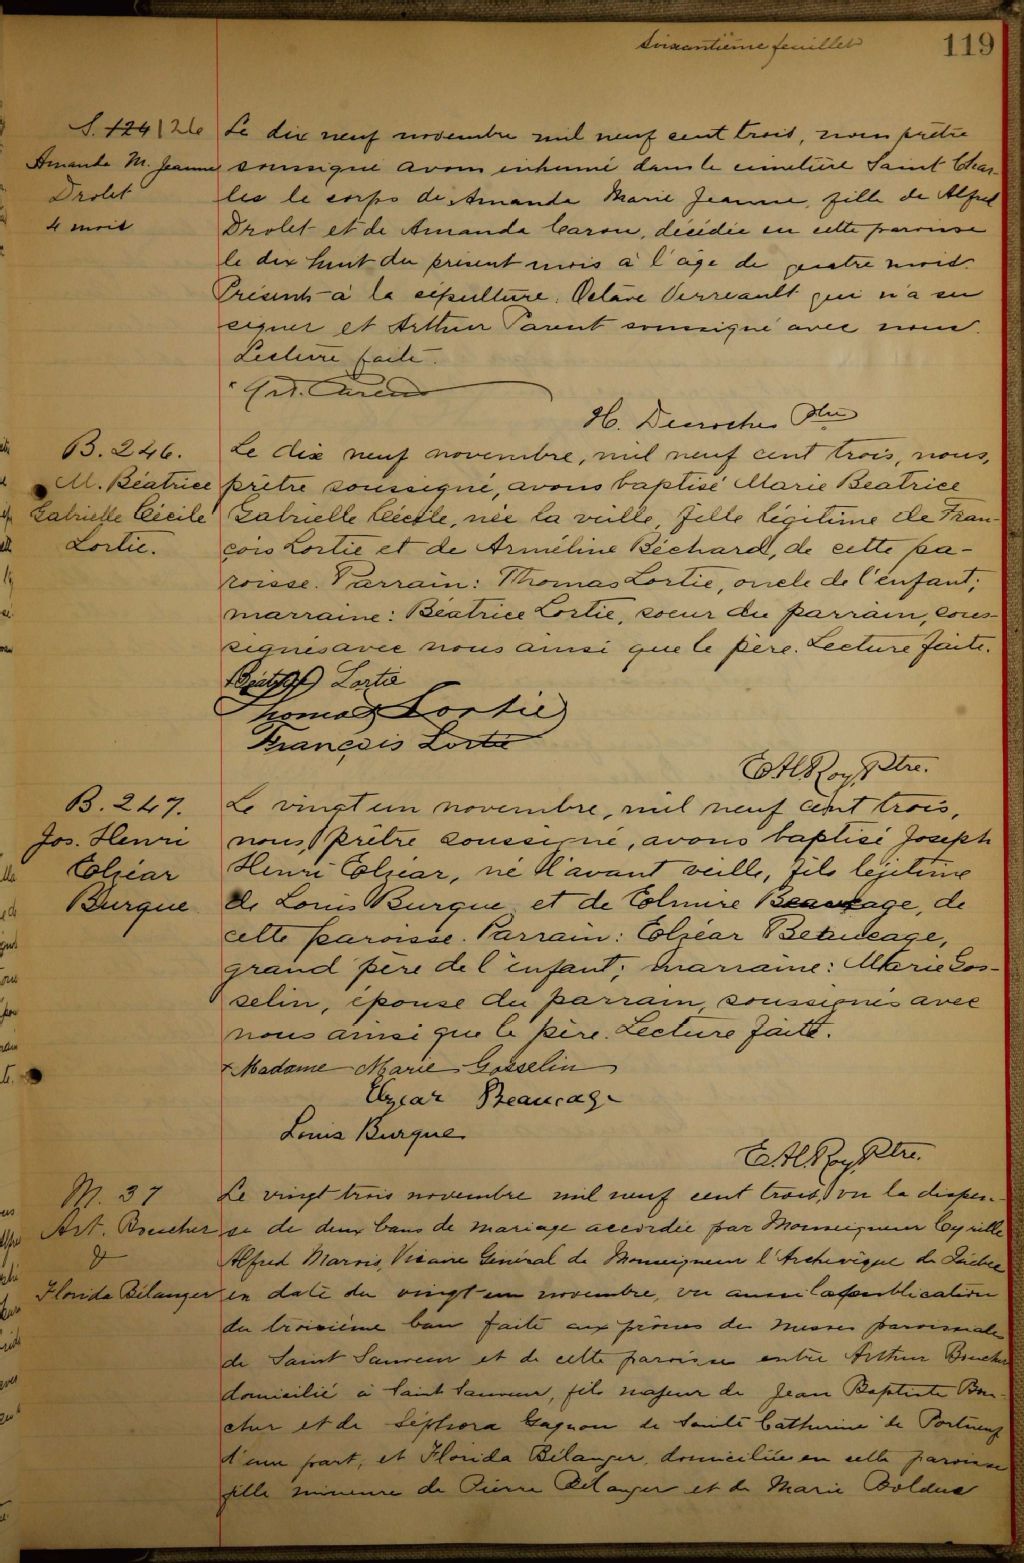 Soixantième feuillet
119
S. 124 126
Amanda M. Jeanne
Drolet
4 mois
Le dix neuf novembre mil neuf cent trois, nous prêtre
soussigné avons inhumé dans le cimetière Saint Char-
les le corps de Amanda Marie Jeanne, fille de Alfred
Drolet et de Amanda Caron, décédée en cette paroisse
le dix huit du présent mois à l'âge de quatre mois.
Présents à la sépulture: Octave Verreault qui n'a su
signer et Arthur Parent soussigné avec nous.
Lecture faite.
Art. Parent
H. Desroches Ptre
B. 246.
M. Béatrice
Gabrielle Cécile
Lortie.
Le dix neuf novembre, mil neuf cent trois, nous,
prêtre soussigné, avons baptisé Marie Beatrice
Gabrielle Cécile, née la veille, fille légitime de Fran-
çois Lortie et de Arméline Béchard, de cette pa-
roisse. Parrain: Thomas Lortie, oncle de l'enfant;
marraine: Béatrice Lortie, soeur du parrain, sous-
signés avec nous ainsi que le père. Lecture faite.
Lortie
Thomas Lortie
François Lortie
E.H. Roy, Ptre.
B. 247.
Jos. Henri
Elzéar
Burque
Le vingt un novembre, mil neuf cent trois,
nous, prêtre soussigné, avons baptisé Joseph
Henri Elzéar, né l'avant veille, fils légitime
de Louis Burque et de Elmire Beaucage, de
cette paroisse. Parrain: Elzéar Beaucage,
grand père de l'enfant; marraine: Marie Gos-
selin, épouse du parrain, soussignés avec
nous ainsi que le père. Lecture faite.
Madame Marie Gosselin
Elzear Beaucage
Louis Burque
E.H. Roy, Ptre.
M. 37
Art. Boucher
&
Florida Bélanger
Le vingt trois novembre mil neuf cent trois, vu la dispen-
se de deux bans de mariage accordée par Monseigneur Cyrille
Alfred Marois, Vicaire Général de Monseigneur l'Archevêque de Québec
en date du vingt-un novembre, vu aussi la publication
du troisième ban faite aux prônes des messes paroissiales
de Saint Sauveur et de cette paroisse entre Arthur Boucher
domicilié à Saint Sauveur, fils majeur de Jean Baptiste Bou-
cher et de Séphora Gagnon de Sainte Catherine de Portneuf
d'une part, et Florida Bélanger, domiciliée en cette paroisse
fille mineure de Pierre Bélanger et de Marie Bolduc